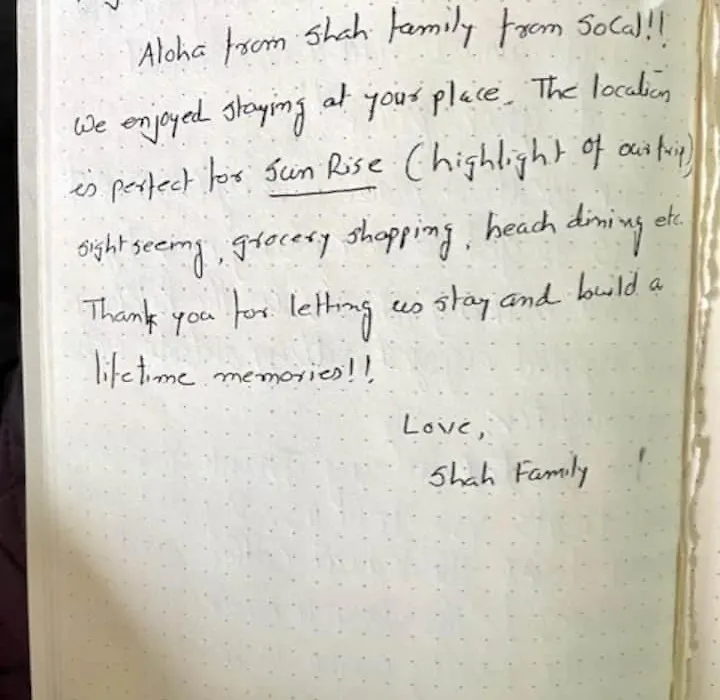 Aloha from Shah family from SoCal!!
We enjoyed staying at your place. The location
is perfect for Sun Rise (highlight of our trip)
sight seeing, grocery shopping, beach dining etc.
Thank you for letting us stay and build a
lifetime memories!!
Love,
Shah Family